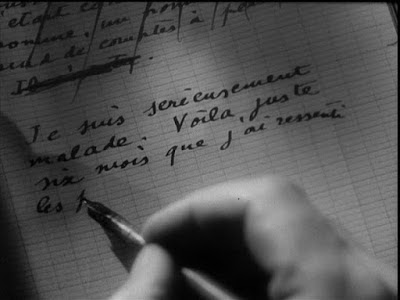 était
homme, un
de comptes à
Il
Je suis sérieusement
malade. Voilà, juste
six mois que j'ai ressenti
les